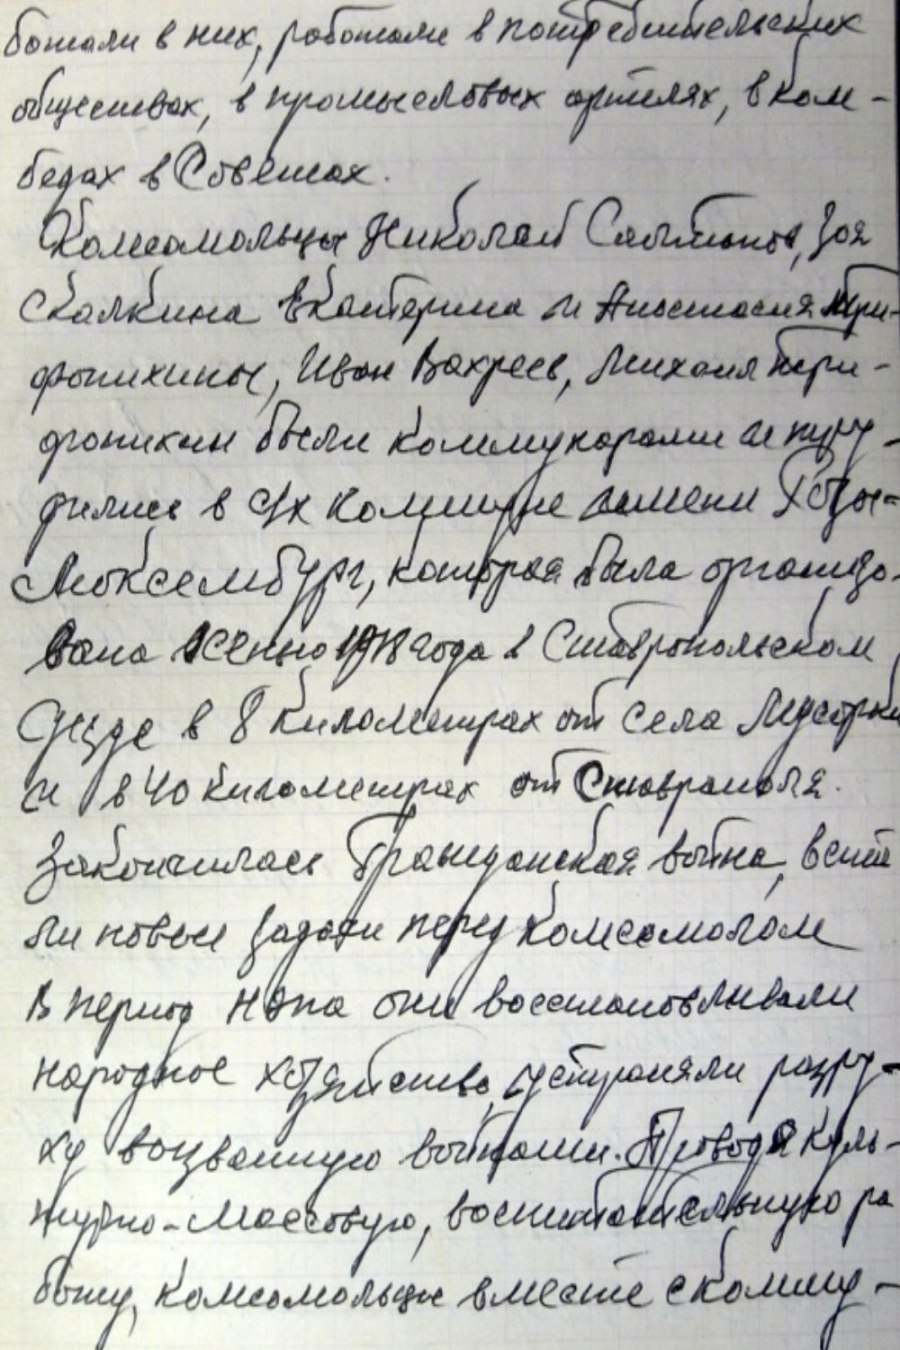 ботали в них, работали в потребительских
обществах, в промысловых артелях, в ком-
бедах в Советах.
Комсомольцы Николай Слытонов, Зоя
Скалкина Екатерина и Анастасия Три-
фонихины, Иван Вахреев, Михаил Три-
фонихин были коммунарами и тру-
дились в с/х коммуне имени Розы-
Люксембург, которая была организо-
вана осенью 1918 года в Ставропольском
уезде в 8 километрах от села Мусорки
и в 40 километрах от Ставрополя.
Закончилась Гражданская война, вста
ли новые задачи перед комсомолом
В период нэпа они восстановливали
народное хозяйство, устраняли разру-
ху вызванную войнами. Проводя куль-
турно-массовую, воспитательную ра
боту, комсомольцы вместе с комму-